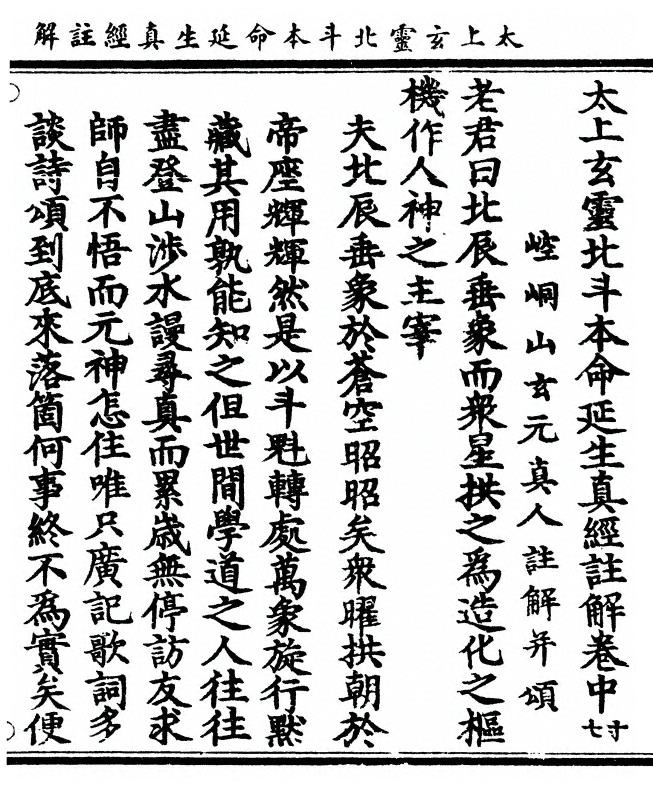 太上玄靈北斗本命延生真經註解
太上玄靈北斗本命延生真經註解卷中 寸七
崆峒山玄元真人註解并頌
老君曰北辰垂象而衆星拱之爲造化之樞
機作人神之主宰
夫北辰垂象於蒼空昭昭矣衆曜拱朝於
帝座輝輝然是以斗魁轉處萬象旋行黙
藏其用孰能知之但世間學道之人往往
盡登山涉水謾尋真而累歲無停訪友求
師自不悟而元神怎住唯只廣記歌詞多
談詩頌到底來落箇何事終不爲實矣便